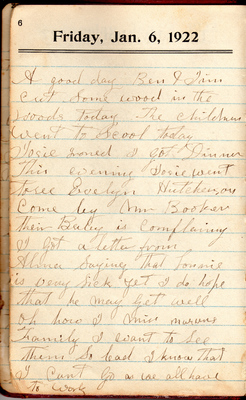 6
Friday, Jan. 6, 1922
A good day Ben & Jim
cut some wood in the
woods today The children
went to Scool today
Josie Ironed I got Dinner
This evening Josie went
to see Evelyn Hutchenson
Come by Mr Booker
their Baby is Complaing
I got a letter from
saying that Tommie
is very Sick yet I do hope
that he may get well
oh how I miss
Family I want to See
them So bad I know that
I cant Go as we all have
to Work